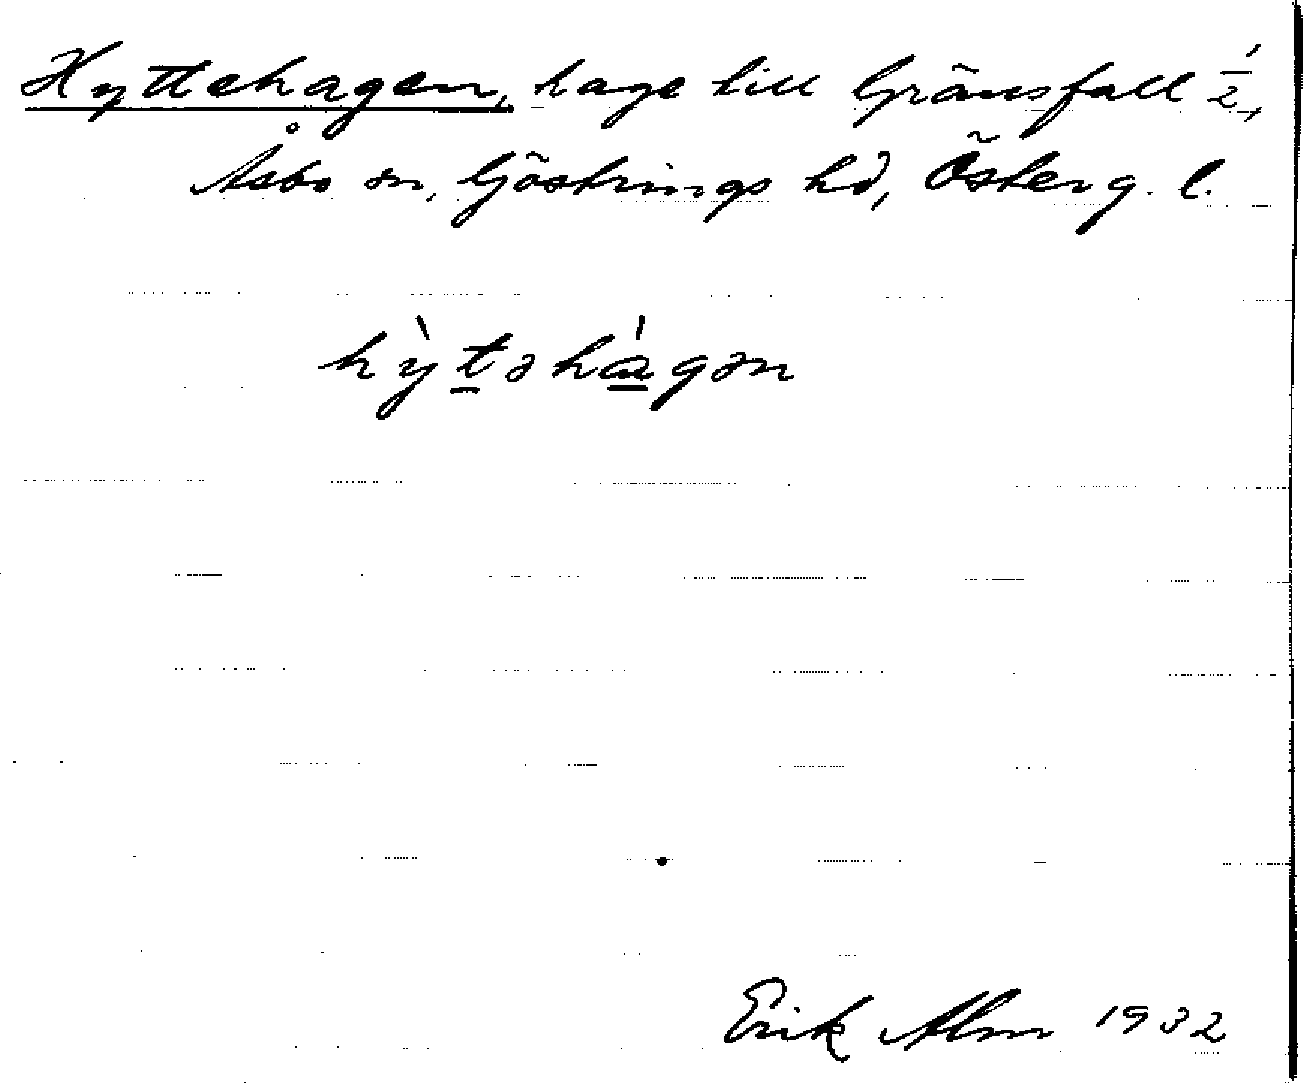 Hyttehagen, hage till Gränsfall 1/2,
Åsbo sn, Göstrings hd, Österg. l.
hỳtəhágən
Erik Alm 1932